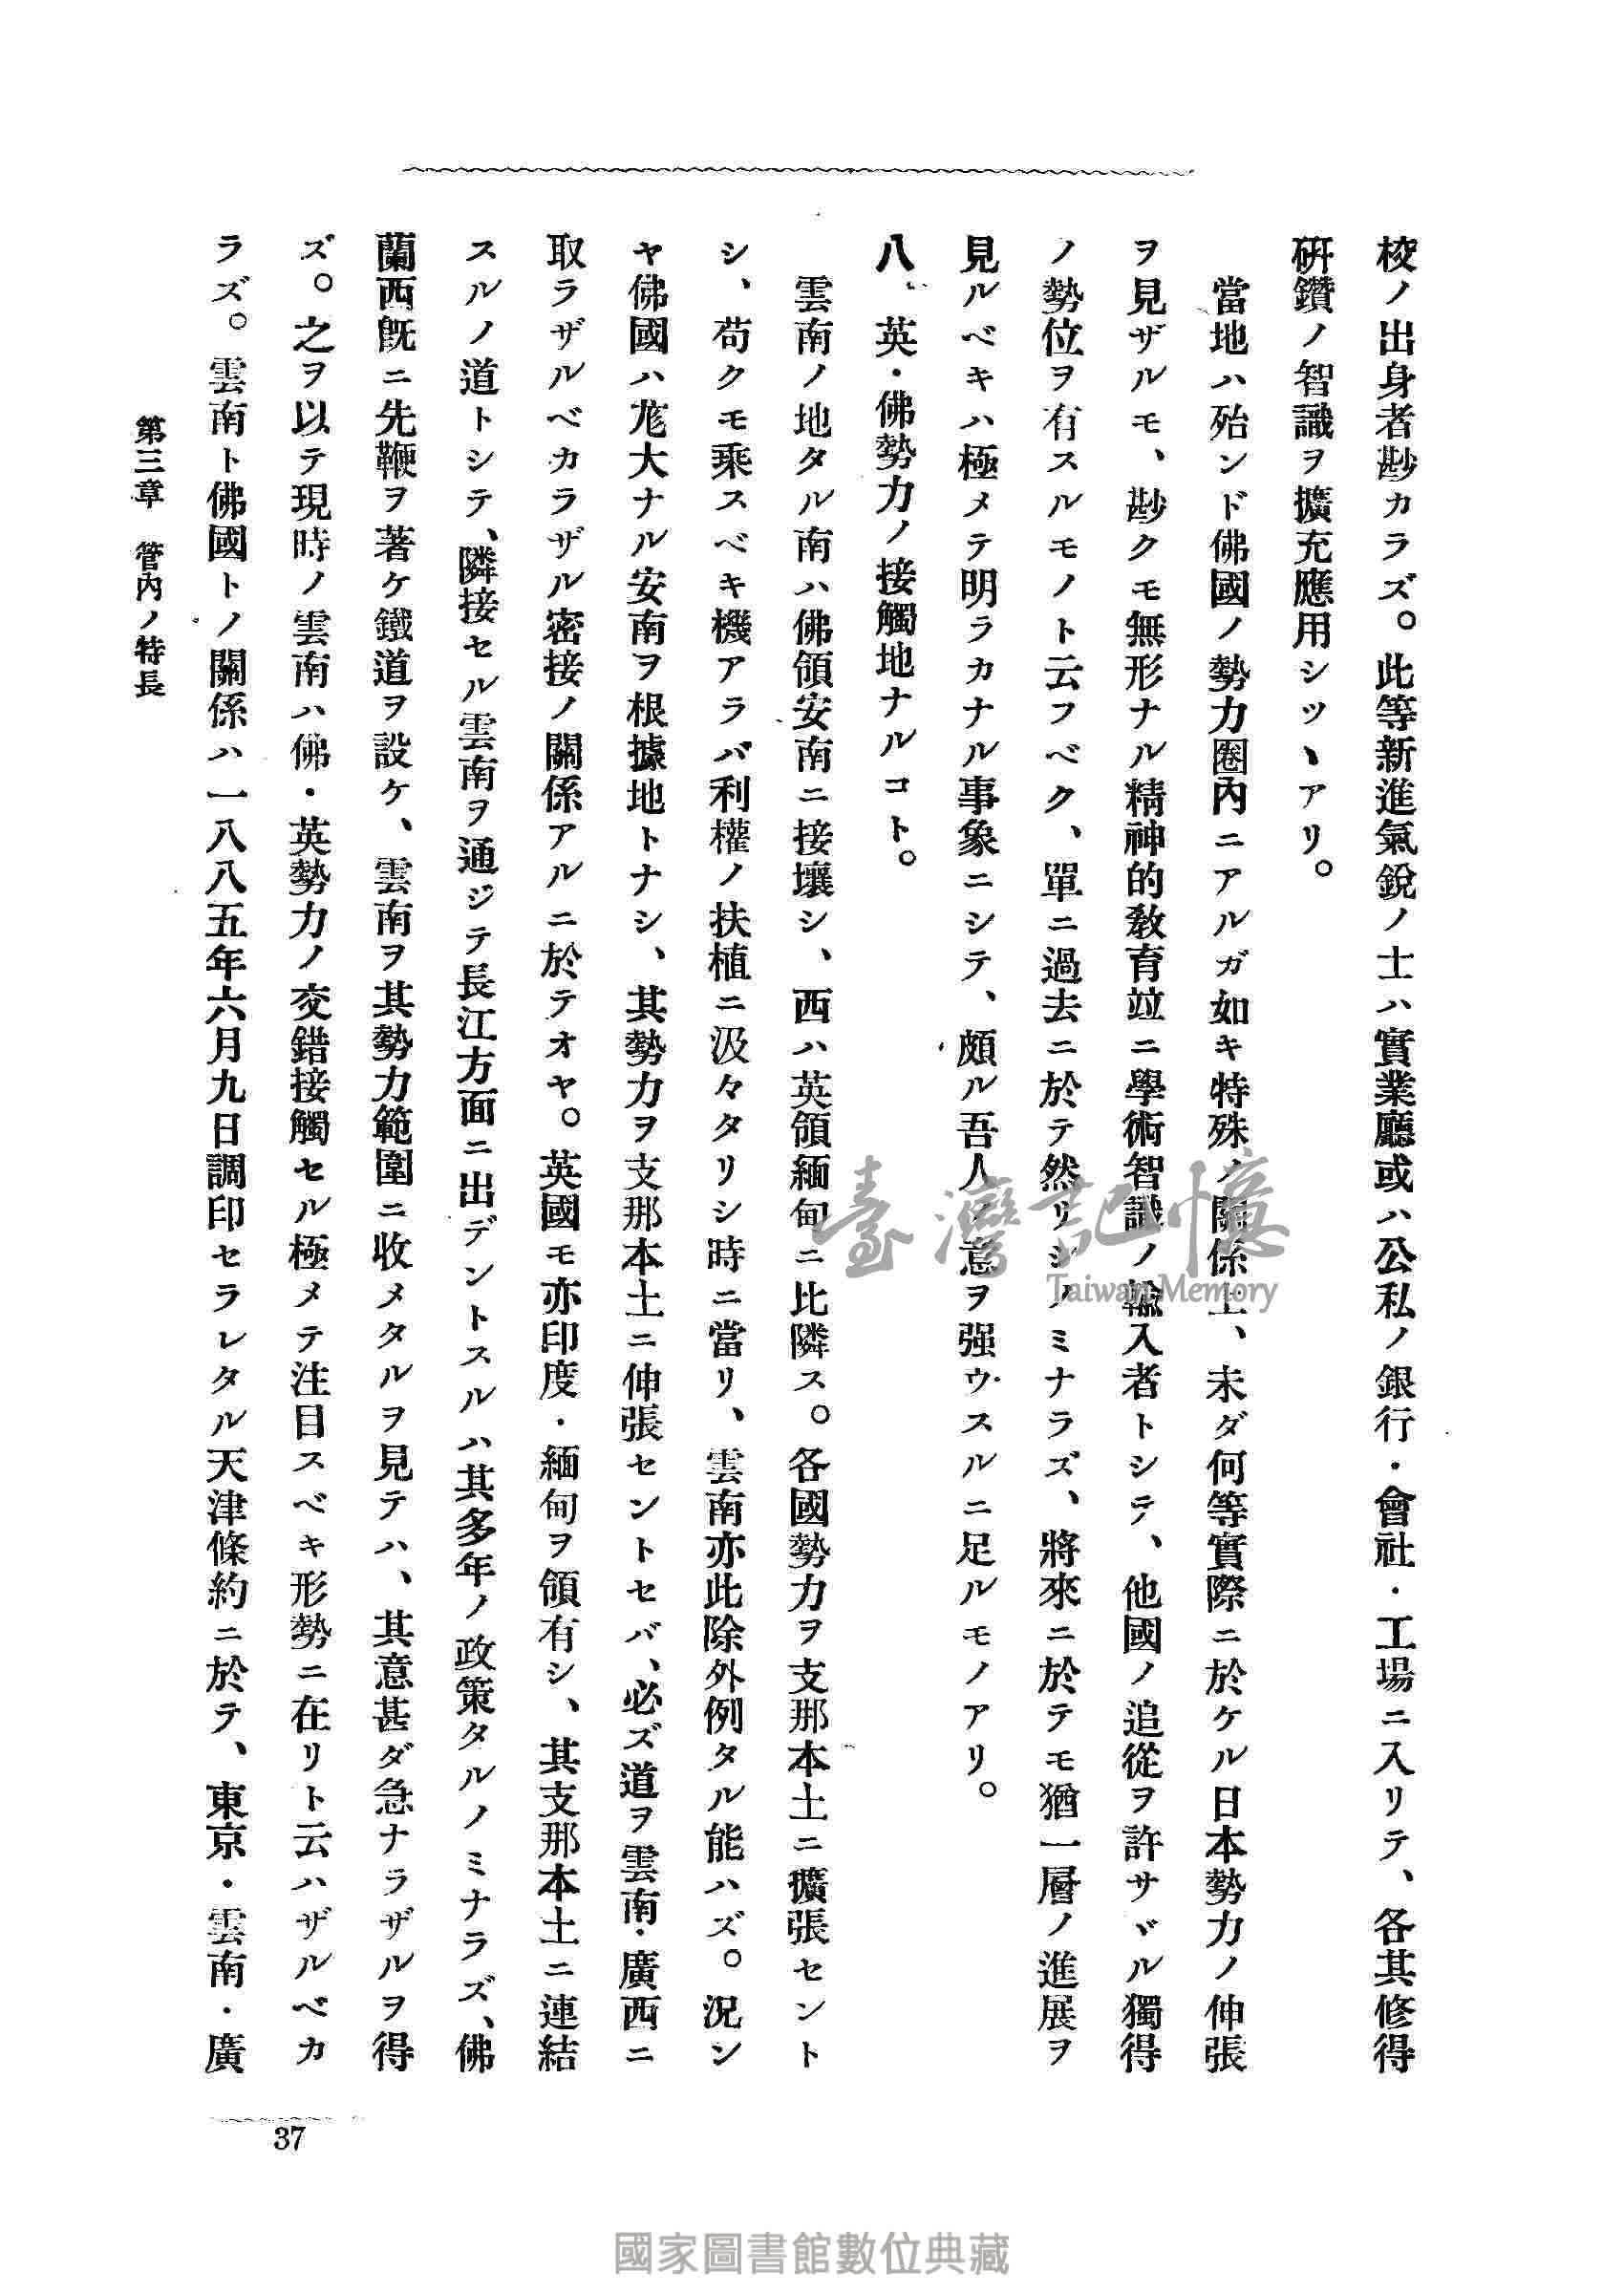 校ノ出身者尠カラズ。此等新進氣銳ノ士ハ實業廳或ハ公私ノ銀行・會社・工場ニ入リテ、各其修得
硏鑽ノ智識ヲ擴充應用シツヽアリ。
當地ハ殆ンド佛國ノ勢力圈內ニアルガ如キ特殊ノ關係上、未ダ何等實際ニ於ケル日本勢力ノ伸張
ヲ見ザルモ、尠クモ無形ナル精神的敎育竝ニ學術智識ノ輸入者トシテ、他國ノ追從ヲ許サヾル獨得
ノ勢位ヲ有スルモノト云フベク、單ニ過去ニ於テ然リシノミナラズ、將來ニ於テモ猶一層ノ進展ヲ
見ルベキハ極メテ明ラカナル事象ニシテ、頗ル吾人ノ意ヲ强ウスルニ足ルモノアリ。
八、英・佛勢力ノ接觸地ナルコト。
雲南ノ地タル南ハ佛領安南ニ接壤シ、西ハ英領緬甸ニ比隣ス。各國勢力ヲ支那本土ニ擴張セント
シ、苟クモ乘スベキ機アラバ利權ノ扶植ニ汲々タリシ時ニ當リ、雲南亦此除外例タル能ハズ。況ン
ヤ佛國ハ尨大ナル安南ヲ根據地トナシ、其勢力ヲ支那本土ニ伸張セントセバ、必ズ道ヲ雲南・廣西ニ
取ラザルベカラザル密接ノ關係アルニ於テオヤ。英國モ亦印度・緬甸ヲ領有シ、其支那本土ニ連結
スルノ道トシテ、隣接セル雲南ヲ通ジテ長江方面ニ出デントスルハ其多年ノ政策タルノミナラズ、佛
蘭西旣ニ先鞭ヲ著ケ鐵道ヲ設ケ、雲南ヲ其勢力範圍ニ收メタルヲ見テハ、其意甚ダ急ナラザルヲ得
ズ。之ヲ以テ現時ノ雲南ハ佛・英勢力ノ交錯接觸セル極メテ注目スベキ形勢ニ在リト云ハザルベカ
ラズ。雲南ト佛國トノ關係ハ一八八五年六月九日調印セラレタル天津條約ニ於テ、東京・雲南・廣
第三章　管內ノ特長
37
臺灣記憶
Taiwan Memory
國家圖書館數位典藏